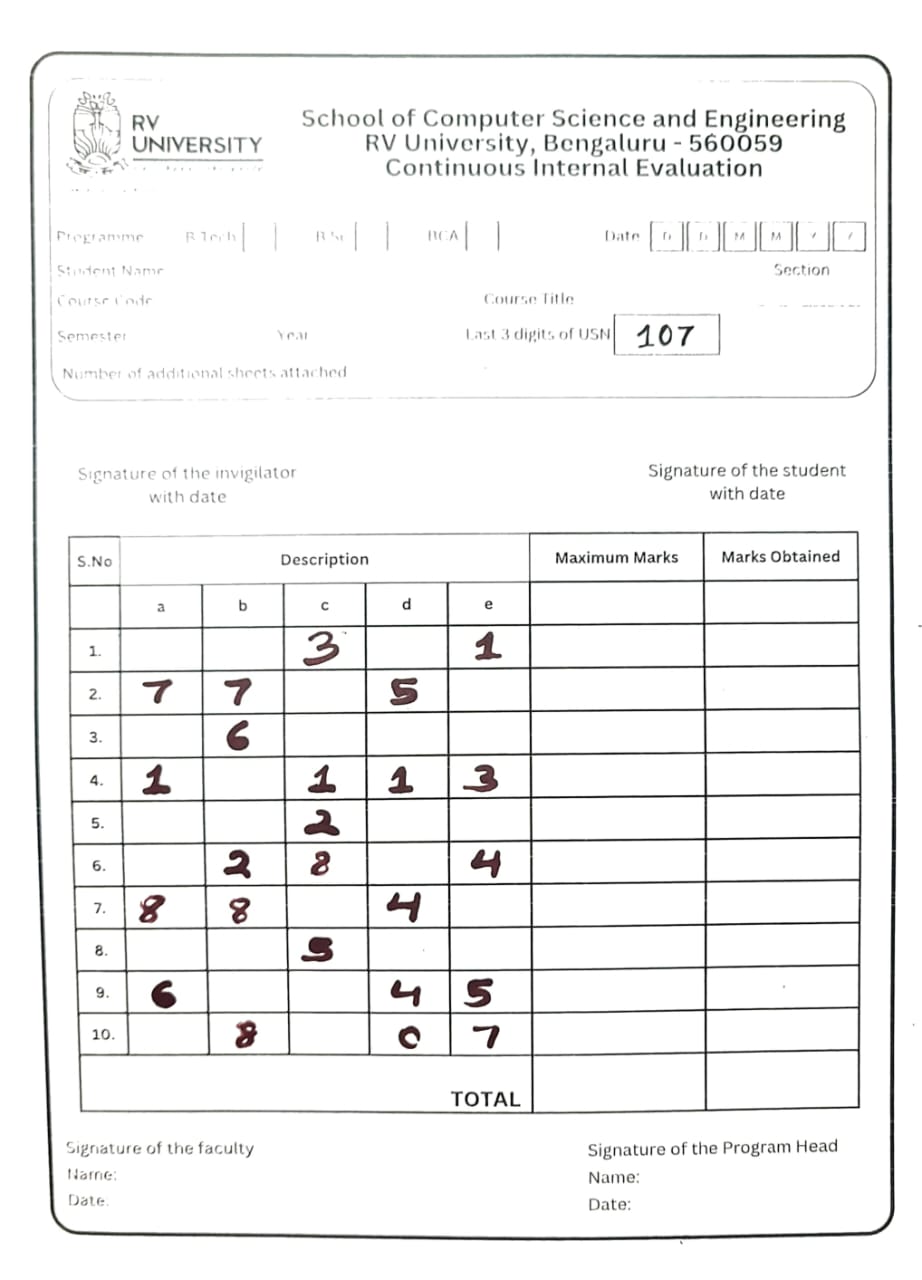 RV
UNIVERSITY
School of Computer Science and Engineering
RV University, Bengaluru - 560059
Continuous Internal Evaluation
Programme B.Tech B.Sc BCA Date D D M M Y Y
Student Name Section
Course Code Course Title
Semester Year Last 3 digits of USN 107
Number of additional sheets attached
Signature of the invigilator Signature of the student
with date with date
S.No Description Maximum Marks Marks Obtained
a b c d e
1. 3 1
2. 7 7 5
3. 6
4. 1 1 1 3
5. 2
6. 2 8 4
7. 8 8 4
8. 5
9. 6 4 5
10. 8 0 7
TOTAL
Signature of the faculty Signature of the Program Head
Name: Name:
Date: Date: